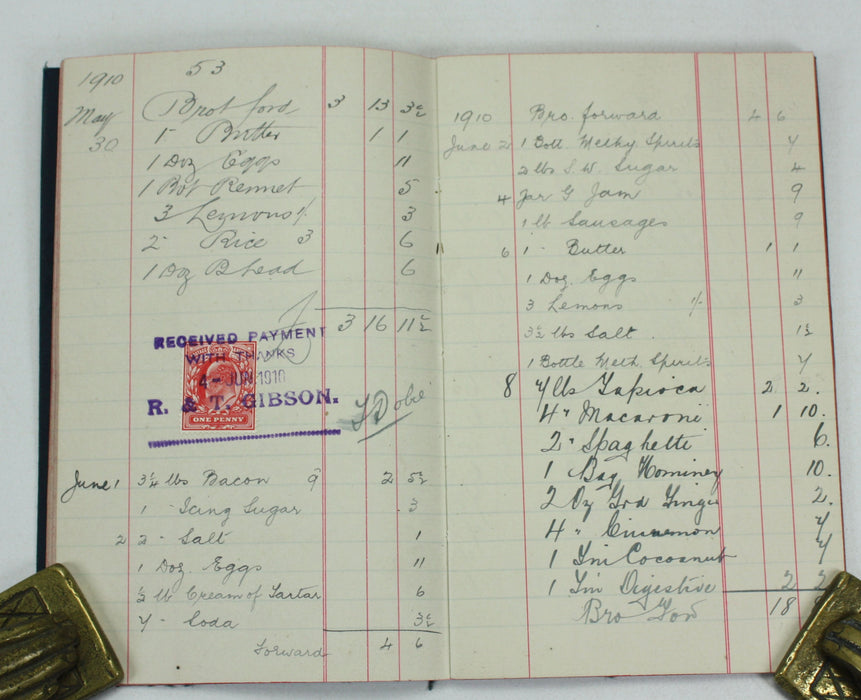 1910 53
May Brot ford 3 13 3½
30 1 - Butter 1 1
1 Doz Eggs 11
1 Bot Rennet 5
3 Lemons 1/ 3
2 - Rice 3 6
1 Doz B. head 6
3 16 11½
RECEIVED PAYMENT
WITH THANKS
4 - JUN 1910
R. & T. GIBSON.
ONE PENNY
June 1 3¼ lbs Bacon 9 2 5½
1 - Icing Sugar 3
2 2 - Salt 1
1 Doz. Eggs 11
½ lb Cream of Tartar 6
7 - Soda 3½
Forward 4 6
1910 Bro. forward 4 6
June 2 1 Bott Methy Spirits 4
2 lbs S.W. Sugar 4
4 Jar G Jam 9
1 lb Sausages 9
6 1 - Butter 1 1
1 Doz. Eggs 11
3 Lemons 1/- 3
3½ lbs Salt 1½
1 Bottle Meth. Spirits 4
8 7 lbs Tapioca 2 2.
4 " Macaroni 1 10.
2 " Spaghetti 6.
1 Bag Hominey 10.
2 Oz Grd Ginger 2.
4 " Cinnamon 4
1 Tin Cocoanut 4
1 Tin Digestive 2 2
Bro For 18